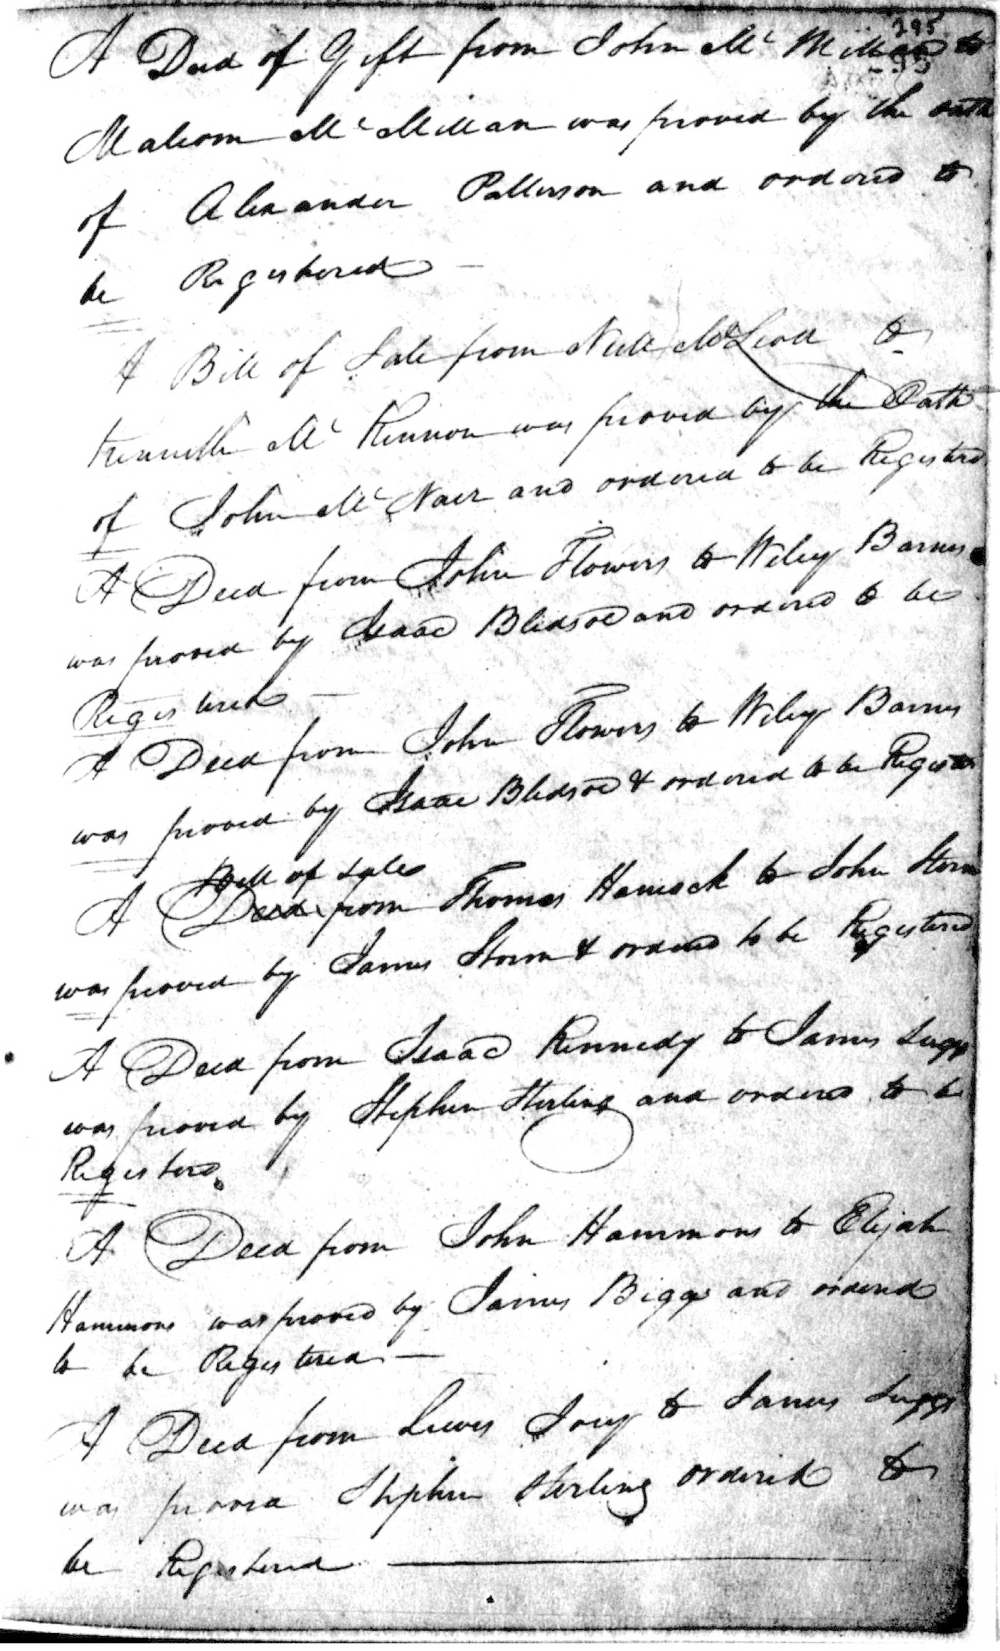 295
A Deed of Gift from John Mc Millan to
Malcom Mc Millan was proved by the oath
of Alexander Patterson and ordered to
be Registered
A Bill of Sale from Neill McLeod to
Kenneth Mc Kinnon was proved by the Oath
of John Mc Nair and ordered to be Registerd
A Deed from John Flowers to Wiley Barnes
was proved by Isaac Bledsoe and ordered to be
Registered
A Deed from John Flowers to Wiley Barnes
was proved by Isaac Bledsoe & ordered to be Register
Bill of Sale
A Deed from Thomas Hamock to John Storm
was proved by James Storm & ordered to be Registered
A Deed from Isaac Kennedy to James Suggs
was proved by Stephen Sterling and ordered to be
Registerd
A Deed from John Hammons to Elijah
Hammons was proved by James Biggs and ordered
to be Registered
A Deed from Lewes Ivey to James Suggs
was proved Stephen Sterling ordered to
be Registered